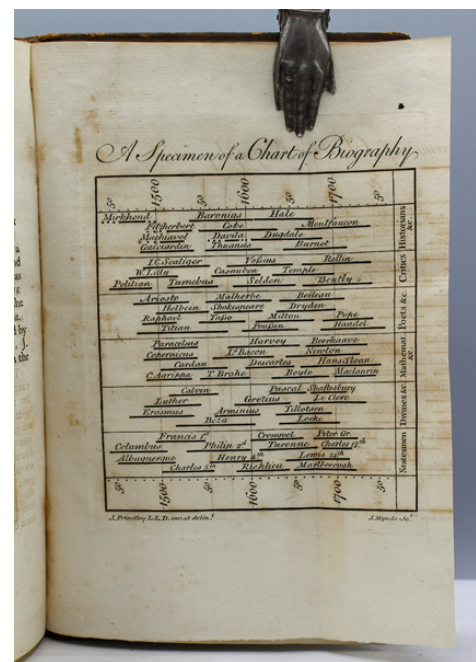 A Specimen of a Chart of Biography
50 1500 50 1600 50 1700 50
Mirkhond Baronius Hale
Fitzherbert Coke Montfaucon
Machiavel Davila Dugdale
Guicciardin Thuanus Burnet
Historians &c.
I.C. Scaliger Vossius Rollin
W. Lilly Casaubon Temple
Politian Turnebus Selden Bently
Critics
Ariosto Malherbe Boileau
Holbein Shakespeare Dryden
Raphael Tasso Milton Pope
Titian Poussin Handel
Poets &c
Paracelsus Harvey Boerhaave
Copernicus Ld. Bacon Newton
Cardan Descartes Hans Sloan
C. Agrippa T. Brahe Boyle Maclaurin
Mathemat. &c.
Calvin Pascal Shaftesbury
Luther Grotius Le Clerc
Erasmus Arminius Tillotson
Beza Locke
Divines &c.
Francis 1st Cromwel Peter Gr.
Columbus Philip 2d Turenne Charles 12th
Albuquerque Henry 4th Lewis 14th
Charles 5th Richlieu Marlborough
Statesmen
50 1500 50 1600 50 1700 50
J. Priestley L.L.D. inv. et delin.t
J. Mynde sc.t